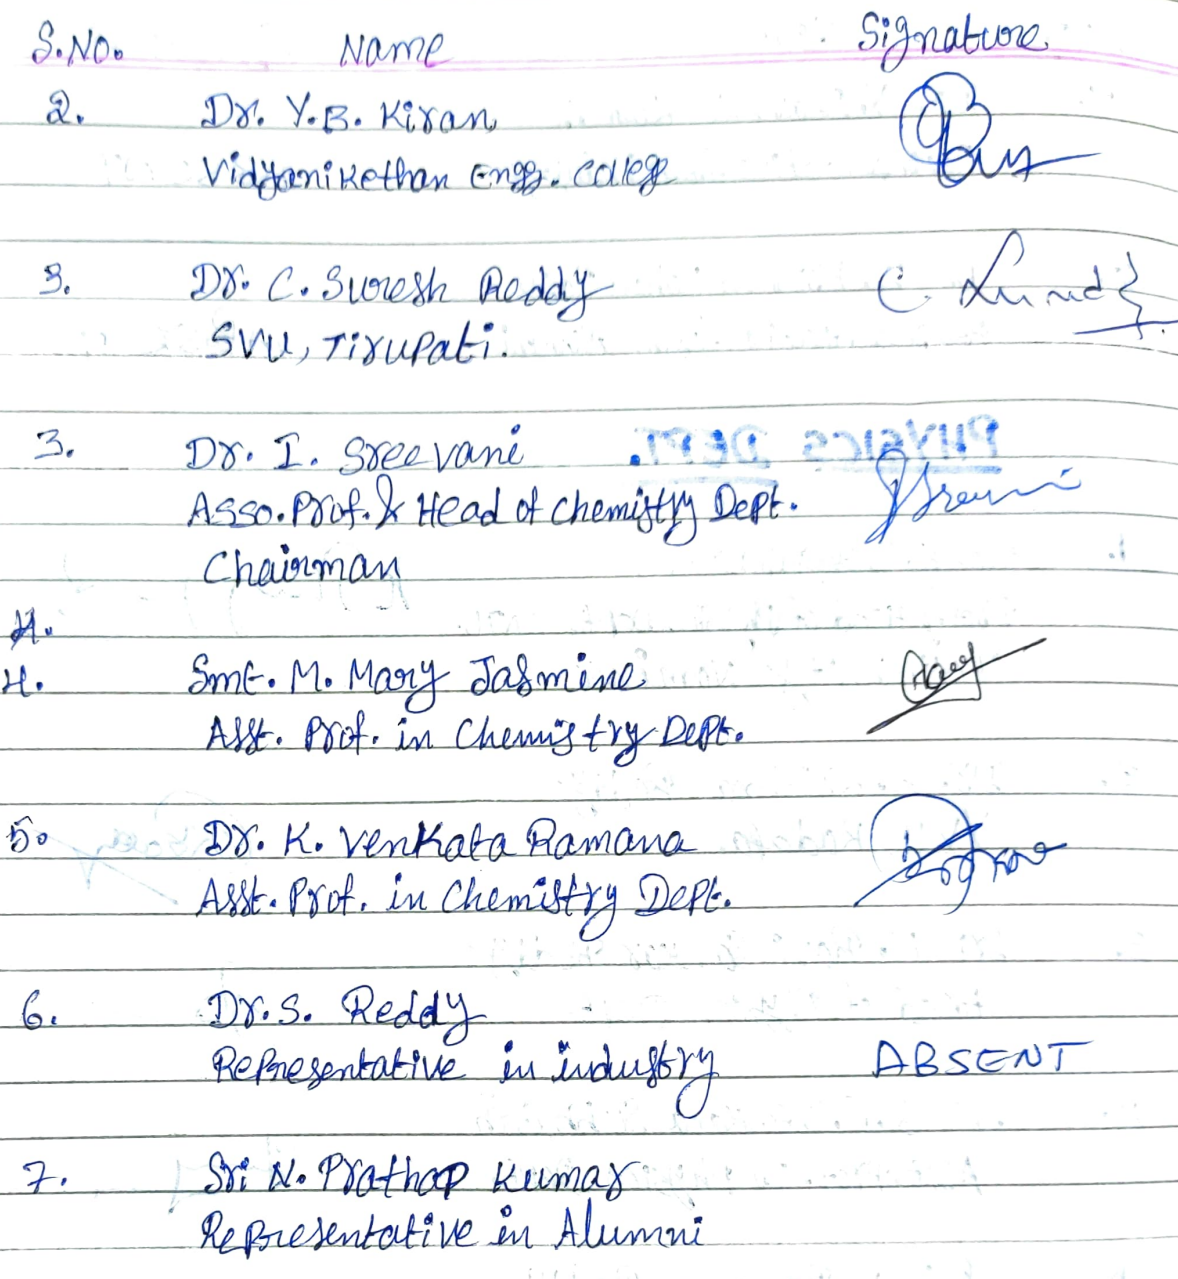 S.No. Name Signature
2. Dr. Y.B. Kiran
Vidyanikethan Engg. college
3. Dr. C. Suresh Reddy
SVU, Tirupati.
PHYSICS DEPT.
3. Dr. I. Sreevani
Asso. Prof. & Head of Chemistry Dept.
Chairman
4.
4. Smt. M. Mary Jasmine
Asst. Prof. in Chemistry Dept.
5. Dr. K. Venkata Ramana
Asst. Prof. in Chemistry Dept.
6. Dr. S. Reddy
Representative in industry ABSENT
7. Sri N. Prathap Kumar
Representative in Alumni